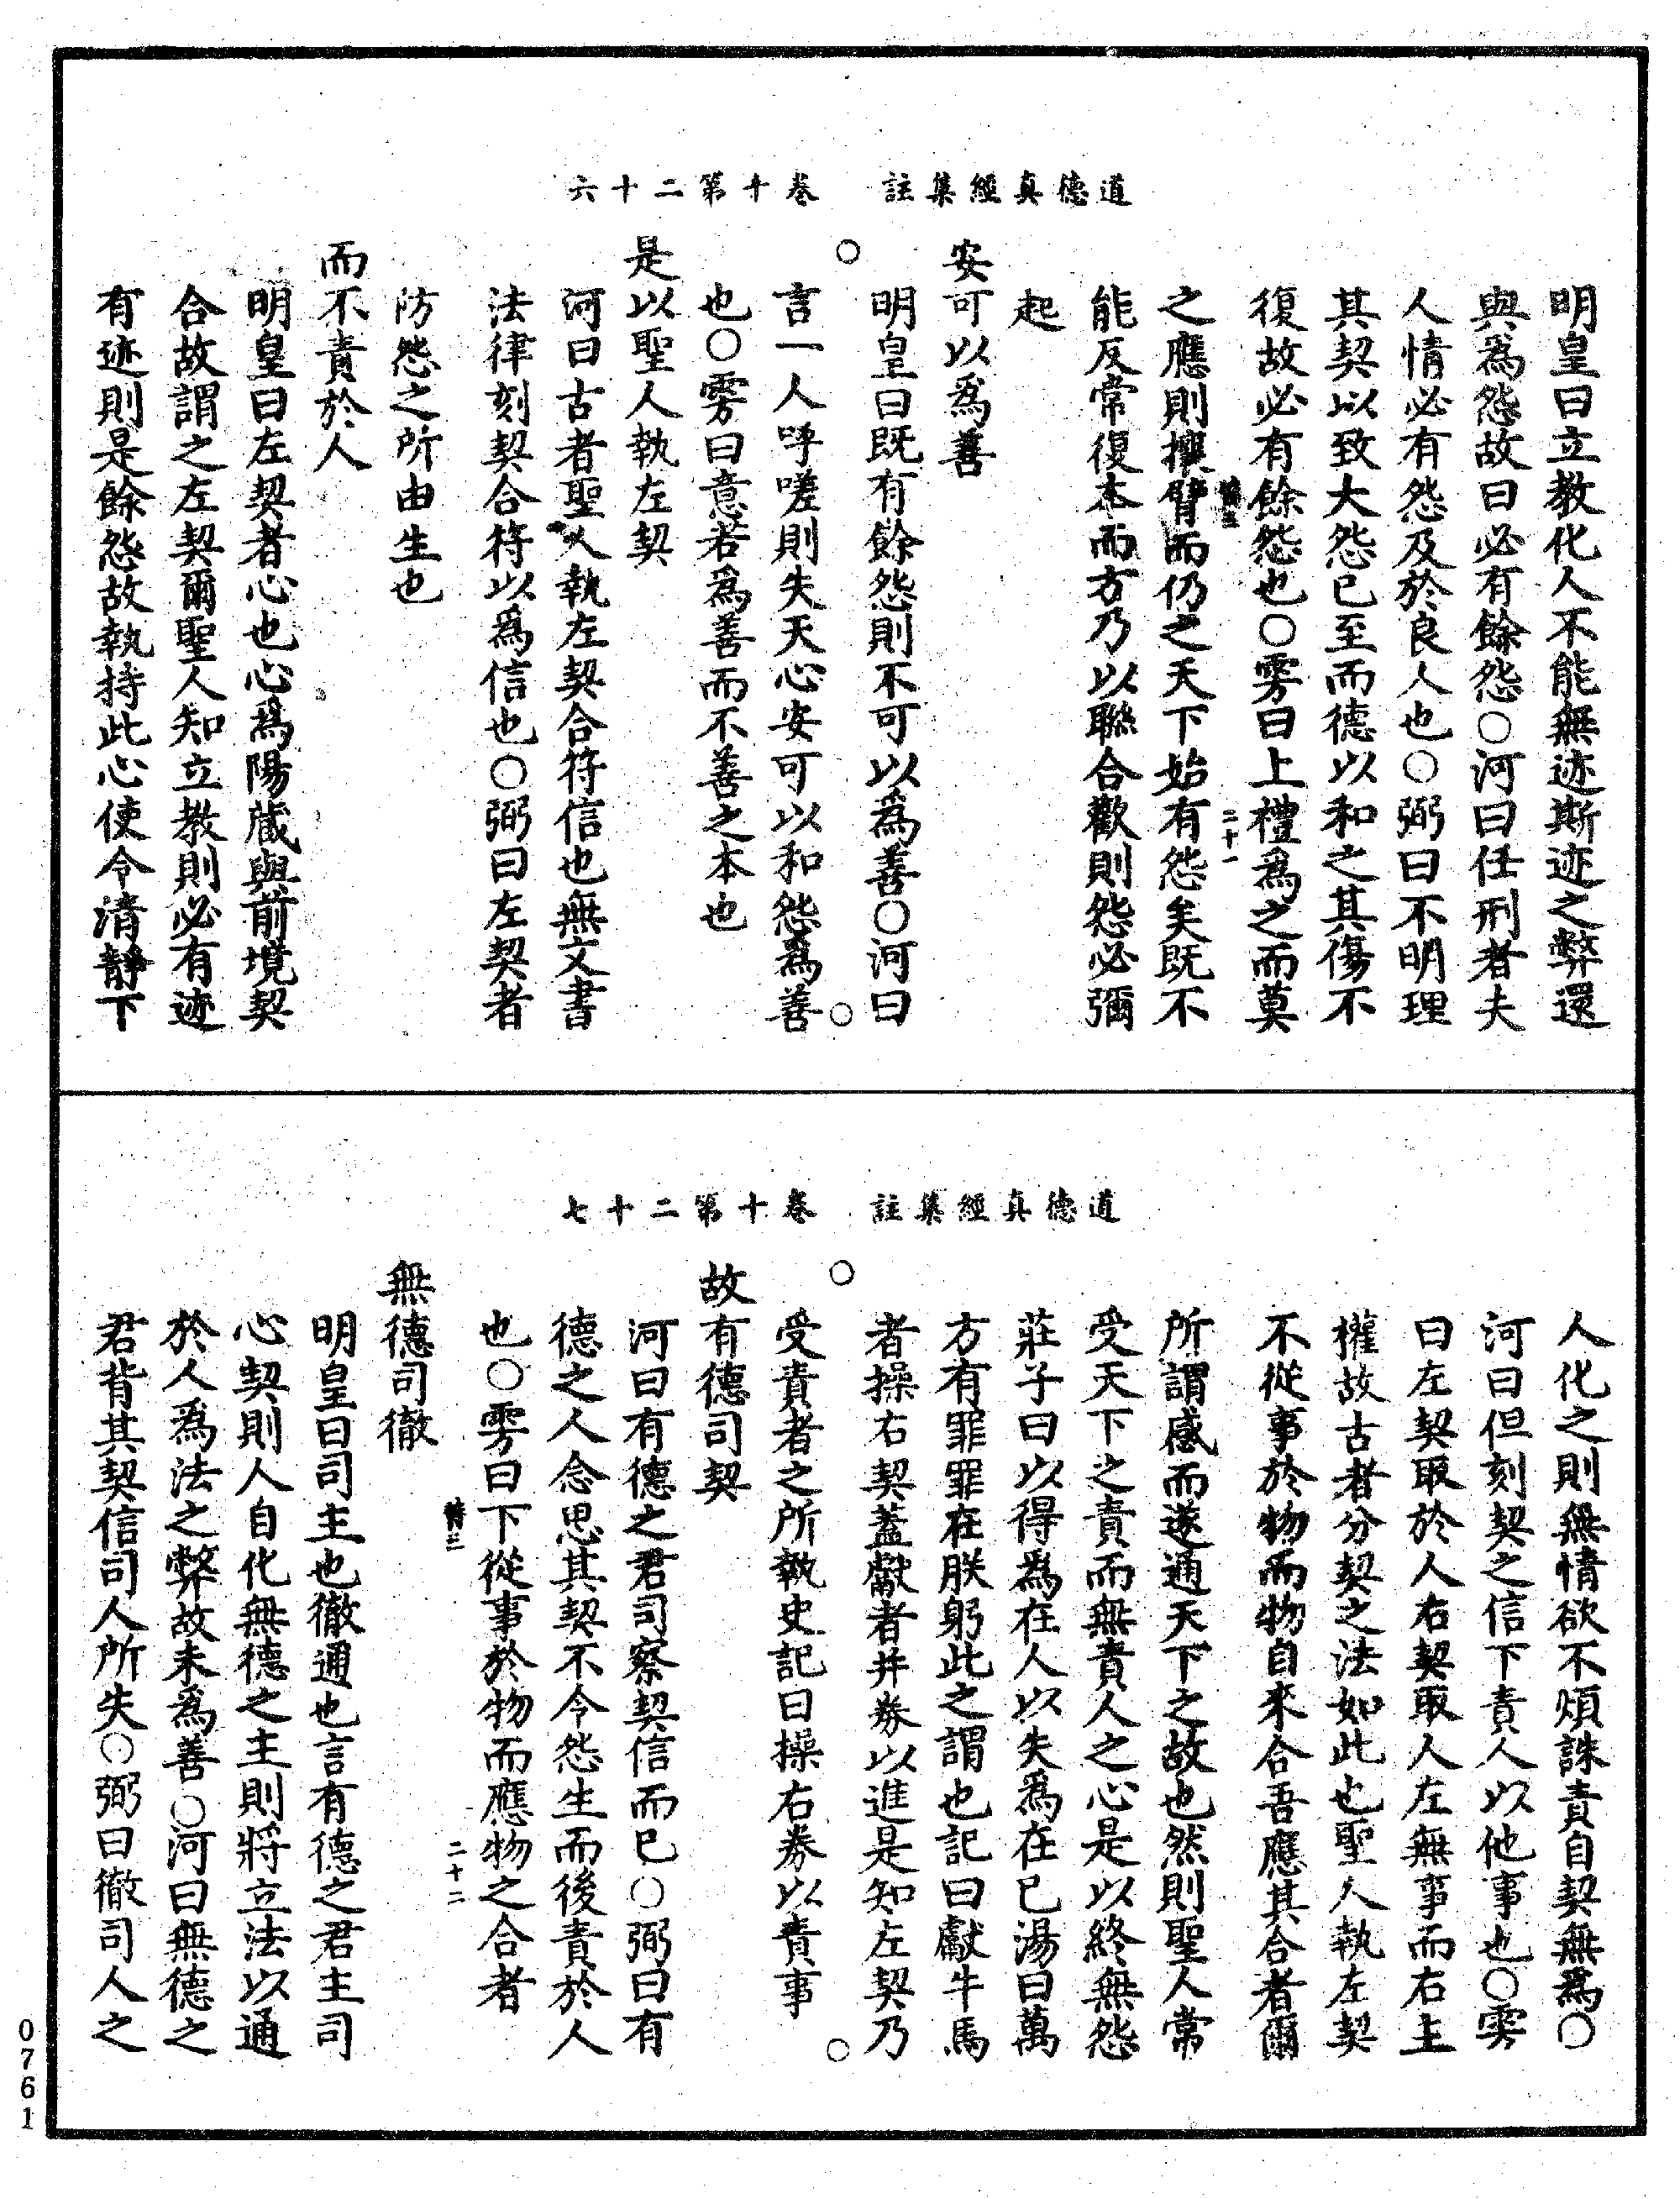 道德真經集註　卷十第二十六
明皇曰立教化人不能無迹斯迹之弊還
與爲怨故曰必有餘怨○河曰任刑者夫
人情必有怨及於良人也○弼曰不明理
其契以致大怨已至而德以和之其傷不
復故必有餘怨也○雱曰上禮爲之而莫
二十一
之應則攘臂而仍之天下始有怨矣既不
能反常復本而方乃以聯合歡則怨必彌
起
安可以爲善
○明皇曰既有餘怨則不可以爲善○河曰
言一人吁嗟則失天心安可以和怨爲善
也○雱曰意若爲善而不善之本也
是以聖人執左契
河曰古者聖人執左契合符信也無文書
法律刻契合符以爲信也○弼曰左契者
防怨之所由生也
而不責於人
明皇曰左契者心也心爲陽藏與前境契
合故謂之左契爾聖人知立教則必有迹
有迹則是餘怨故執持此心使令清靜下
道德真經集註　卷十第二十七
人化之則無情欲不煩誅責自契無爲○
河曰但刻契之信下責人以他事也○雱
曰左契取於人右契取人左無事而右主
權故古者分契之法如此也聖人執左契
不從事於物而物自來合吾應其合者爾
所謂感而遂通天下之故也然則聖人常
受天下之責而無責人之心是以終無怨
莊子曰以得爲在人以失爲在已湯曰萬
方有罪罪在朕躬此之謂也記曰獻牛馬
者操右契蓋獻者并券以進是知左契乃
○受責者之所執史記曰操右券以責事○
故有德司契
河曰有德之君司察契信而已○弼曰有
德之人念思其契不令怨生而後責於人
也○雱曰下從事於物而應物之合者
二十二
無德司徹
明皇曰司主也徹通也言有德之君主司
心契則人自化無德之主則將立法以通
於人爲法之弊故未爲善○河曰無德之
君背其契信司人所失○弼曰徹司人之
0761